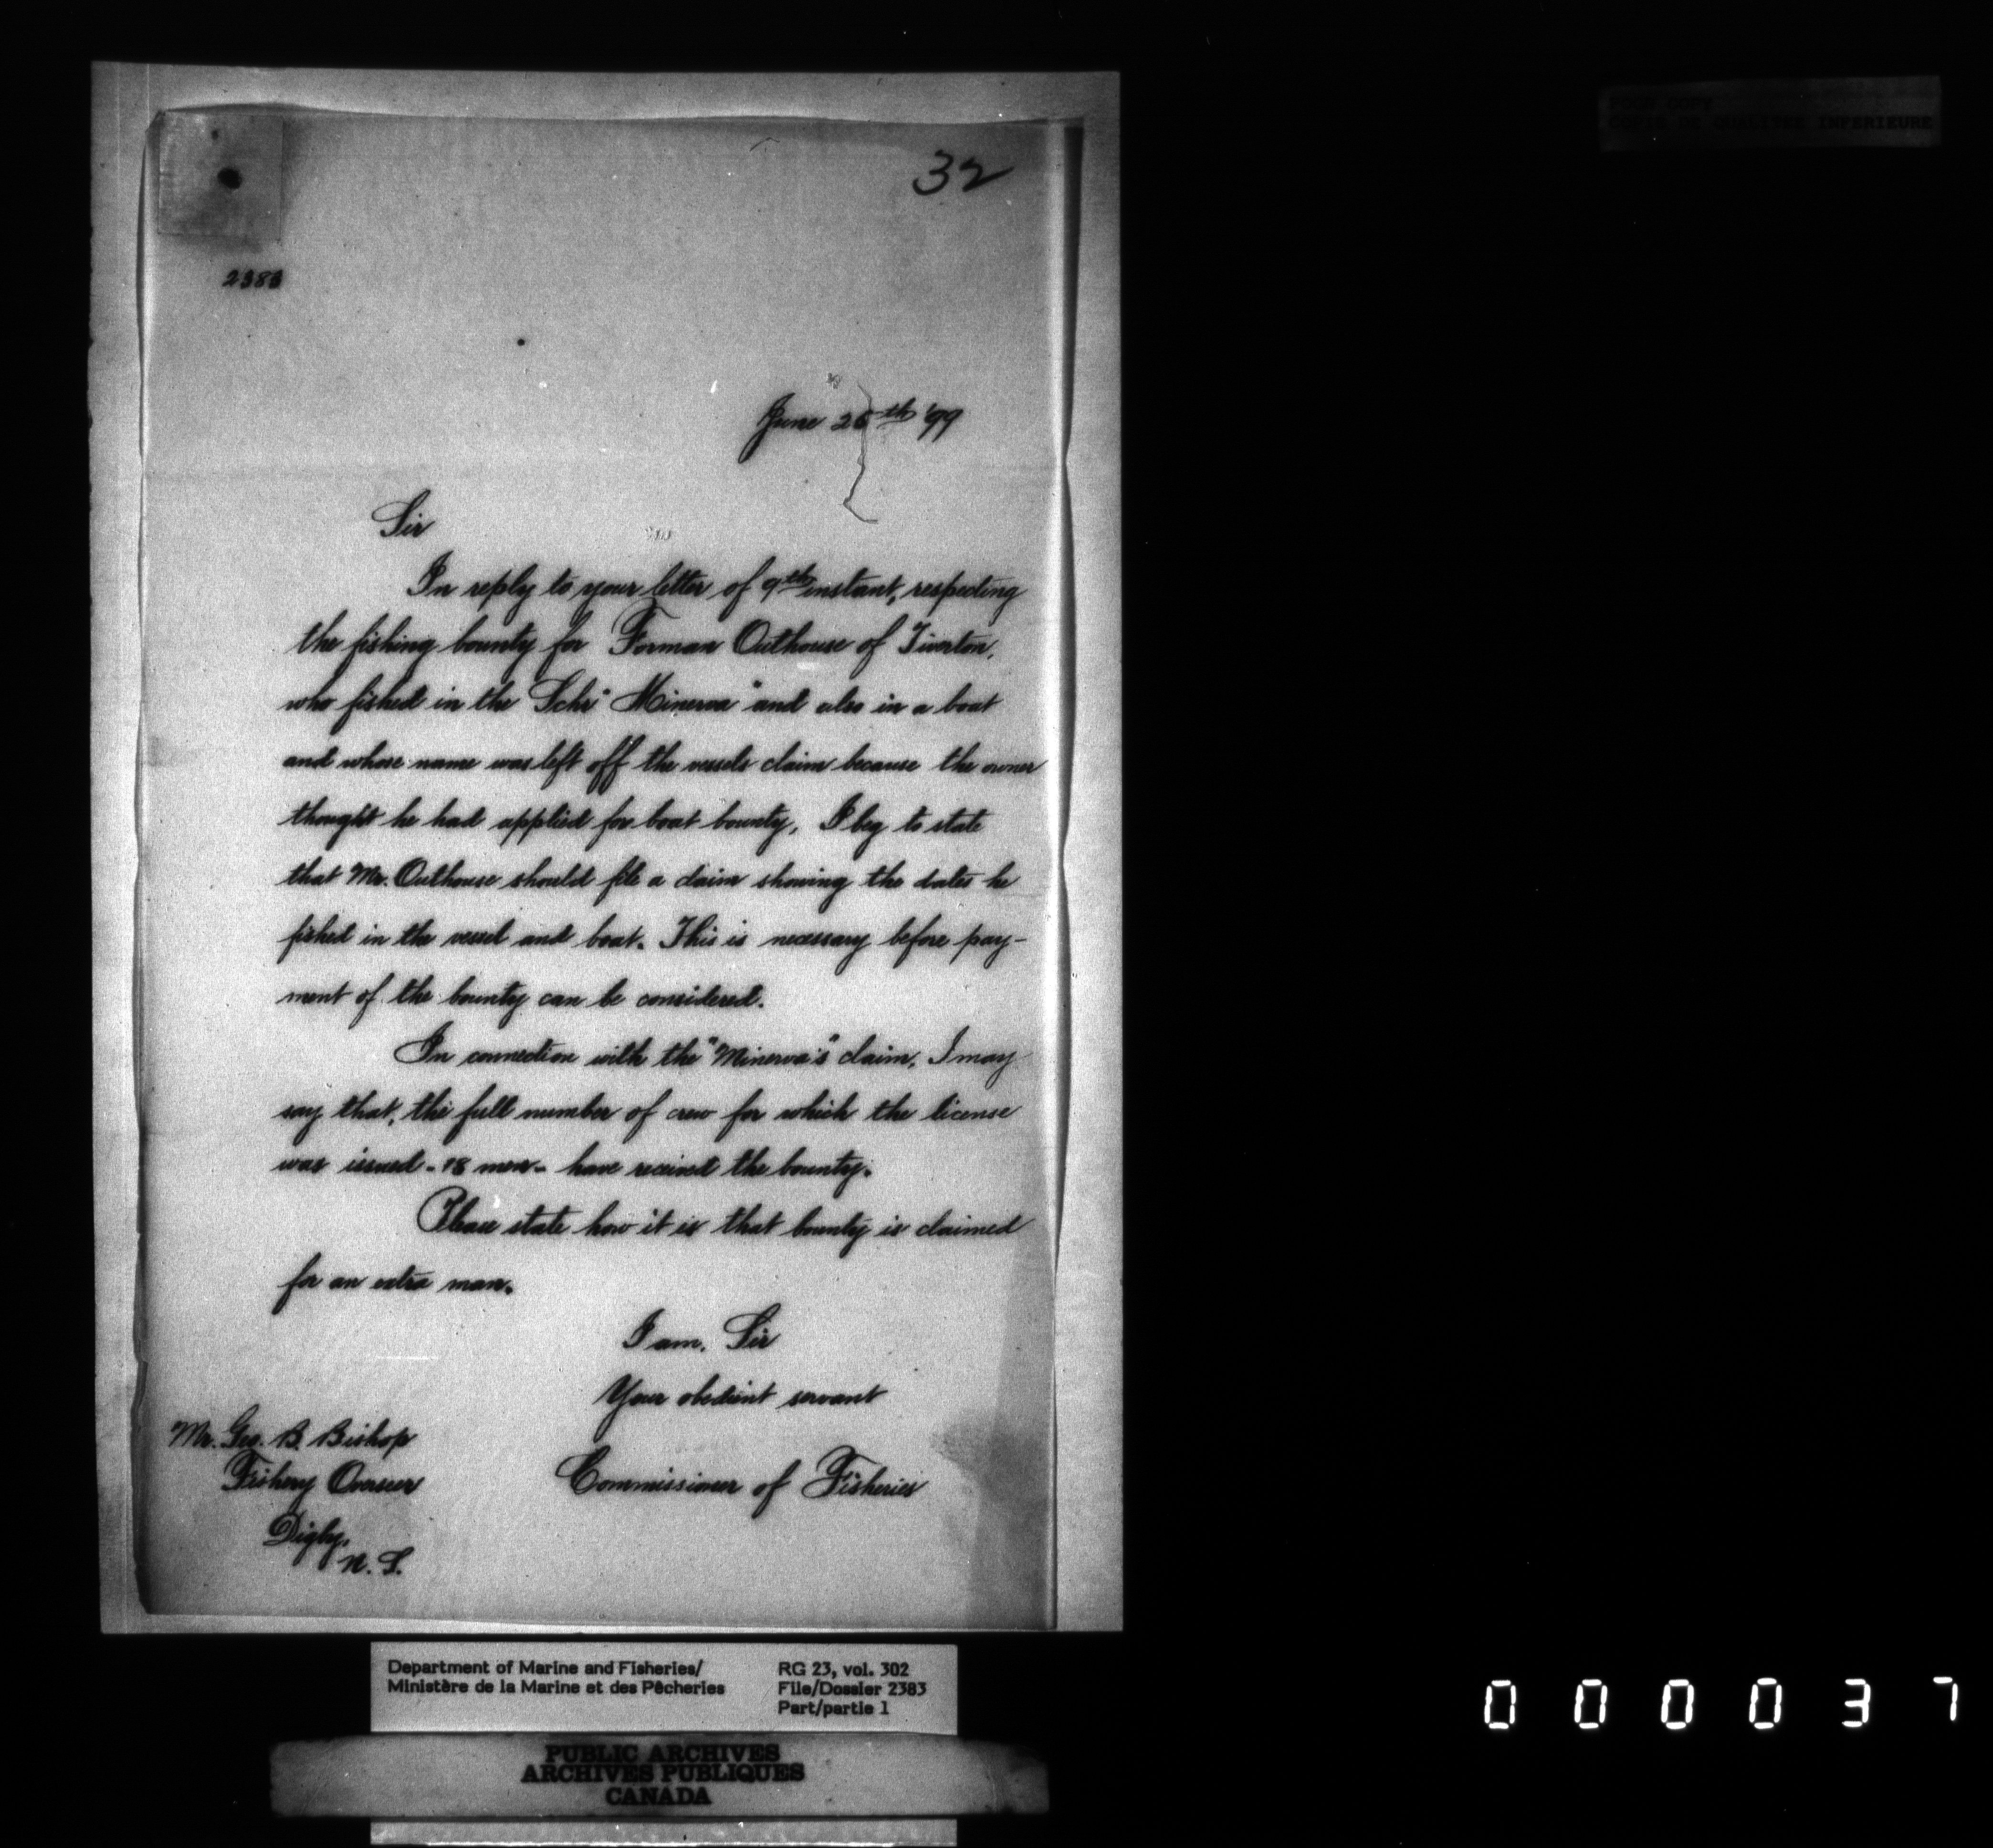 POOR COPY
COPIE DE QUALITEE INFERIEURE
32
2383
June 26th '99
Sir
In reply to your letter of 9th instant, respecting
the fishing bounty for Forman Outhouse of Tiverton,
who fished in the Schr "Minerva" and also in a boat
and whose name was left off the vessels claim because the owner
thought he had applied for boat bounty, I beg to state
that Mr. Outhouse should file a claim showing the dates he
fished in the vessel and boat. This is necessary before pay-
ment of the bounty can be considered.
In connection with the "Minerva's" claim, I may
say that, the full number of crew for which the license
was issued - 18 men - have received the bounty.
Please state how it is that bounty is claimed
for an extra man.
I am, Sir
Your obedient servant
Commissioner of Fisheries
Mr. Geo. B. Bishop
Fishery Overseer
Digby,
N. S.
Department of Marine and Fisheries/
Ministère de la Marine et des Pêcheries
RG 23, vol. 302
File/Dossier 2383
Part/partie 1
PUBLIC ARCHIVES
ARCHIVES PUBLIQUES
CANADA
000037